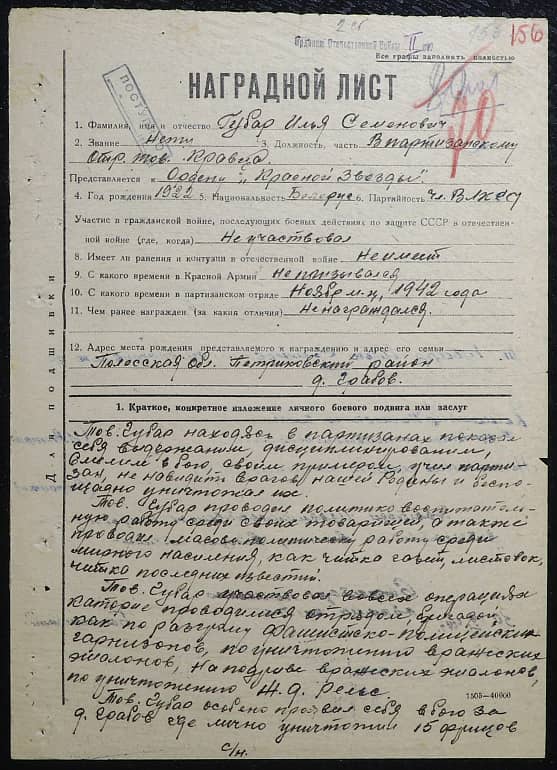 2 сг
Орденом Отечественной Войны II
153 156
Все графы заполнять полностью
ПОСТУП
НАГРАДНОЙ ЛИСТ
1. Фамилия, имя и отчество Губар Илья Семонович
2. Звание Нети 3. Должность, часть В партизанскому
Отр. тов. Кравца.
Представляется к Ордену "Красной Звезды"
4. Год рождения 1922 5. Национальность Белорус 6. Партийность чл. ВЛКСМ
Участие в гражданской войне, последующих боевых действиях по защите СССР в отечествен-
ной войне (где, когда) Не участвовал
8. Имеет ли ранения и контузии в отечественной войне Не имеит
9. С какого времени в Красной Армии не призывался
10. С какого времени в партизанском отряде Ноябр м-ц, 1942 года
11. Чем ранее награжден (за какия отличия) Не награждался.
12. Адрес места рождения представляемого к награждению и адрес его семьи
Полесская Обл. Петриковский район
д. Грабов.
Для подшивки
1. Краткое, конкретное изложение личного боевого подвига или заслуг
Тов. Губар находясь в партизанах показал
себя выдержаним, дисциплинированим,
смелим в бою, своим примером учил парти-
зан, не навидить врагов нашей Родины и беспо-
щадно уничтожая их.
Тов. Губар проводил политико воспитатель-
ную работу среди своих товарищей, а также
проводил массово политическую работу среди
мирного населения, как читка газет, листовок,
читка последних известий.
Тов. Губар участвовал в всех операциях
каторие проводилися отрядом, бригадой
как по разгрому фашистско-полицейских
гарнизонов, по уничтожению вражеских
эшалонов, на подриве вражеских эшалонов,
по уничтожению Ж. д. Рельс. 1505—40000
Тов. Губар особено проявил себя в бою за
д. Грабов где лично уничтожил 15 фрицов
с/н.